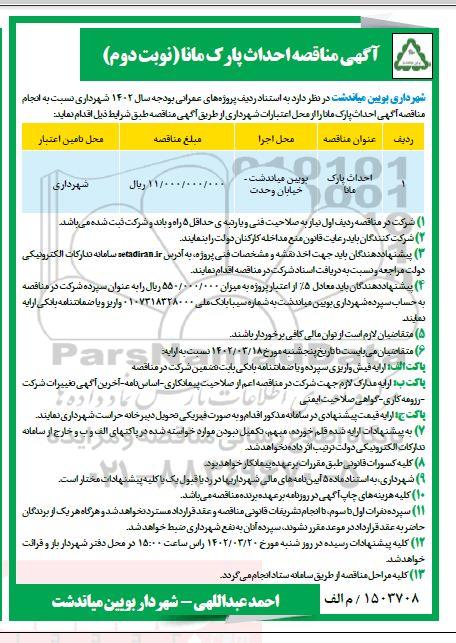 آگهی مناقصه احداث پارک مانا (نوبت دوم)
شهرداری بویین میاندشت در نظر دارد به استناد ردیف پروژه‌های عمرانی بودجه سال ۱۴۰۲ شهرداری نسبت به انجام
مناقصه آگهی احداث پارک مانا را از محل اعتبارات شهرداری از طریق آگهی مناقصه طبق شرایط ذیل اقدام نماید:
ردیف عنوان مناقصه محل اجرا مبلغ مناقصه محل تامین اعتبار
۱ احداث پارک مانا بویین میاندشت - خیابان وحدت ۱۱/۰۰۰/۰۰۰/۰۰۰ ریال شهرداری
۱) شرکت در مناقصه ردیف اول نیاز به صلاحیت فنی و یا رتبه ی حداقل ۵ راه و باند و شرکت ثبت شده می‌باشد.
۲) شرکت کنندگان باید رعایت قانون منع مداخله کارکنان دولت را بنمایند.
۳) پیشنهاددهندگان باید جهت اخذ نقشه و مشخصات فنی پروژه، به آدرس setadiran.ir سامانه تدارکات الکترونیکی
دولت مراجعه و نسبت به دریافت اسناد شرکت در مناقصه اقدام نمایند.
۴) پیشنهاددهندگان باید معادل ۵٪ از اعتبار پروژه به میزان ۵۵۰/۰۰۰/۰۰۰ ریال را به عنوان سپرده شرکت در مناقصه
به حساب سپرده شهرداری بویین میاندشت به شماره سیبا بانک ملی ۰۱۰۷۳۱۸۳۲۸۰۰۰ واریز و یا ضمانتنامه بانکی ارایه
نمایند.
۵) متقاضیان لازم است از توان مالی کافی برخوردار باشند.
۶) متقاضیان می‌بایست تا تاریخ پنجشنبه مورخ ۱۴۰۲/۰۳/۱۸ نسبت به ارایه:
پاکت الف: ارایه فیش واریزی سپرده و یا ضمانتنامه بانکی بابت تضمین شرکت در مناقصه
پاکت ب: ارایه مدارک لازم جهت شرکت در مناقصه اعم از صلاحیت پیمانکاری-اساس‌نامه-آخرین آگهی تغییرات شرکت
-رزومه کاری-گواهی صلاحیت ایمنی
پاکت ج: ارایه قیمت پیشنهادی در سامانه مذکور اقدام و به صورت فیزیکی تحویل دبیرخانه حراست شهرداری نمایند.
۷) به پیشنهادات ارایه شده قلم خورده، مبهم، تکمیل نبودن موارد خواسته شده در پاکتهای الف و ب و خارج از سامانه
تدارکات الکترونیکی دولت ترتیب اثر داده نخواهد شد.
۸) کلیه کسورات قانونی طبق مقررات بر عهده پیمانکار خواهد بود.
۹) شهرداری، به استناد ماده ۵ آیین‌نامه‌های مالی شهرداریها در رد یا قبول یک یا کلیه پیشنهادات مختار است.
۱۰) کلیه هزینه‌های چاپ آگهی در روزنامه بر عهده برنده مناقصه می‌باشد.
۱۱) سپرده نفرات اول تا سوم، تا انجام تشریفات قانونی مناقصه و عقد قرارداد مسترد نخواهد شد و هرگاه هر یک از برندگان
حاضر به عقد قرارداد در موعد مقرر نشوند، سپرده آنان به نفع شهرداری ضبط خواهد شد.
۱۲) کلیه پیشنهادات رسیده در روز شنبه مورخ ۱۴۰۲/۰۳/۲۰ راس ساعت ۱۵:۰۰ در محل دفتر شهردار باز و قرائت
خواهد شد.
۱۳) کلیه مراحل مناقصه از طریق سامانه ستاد انجام می‌گردد.
۱۵۰۳۷۰۸ / م الف
احمد عبداللهی - شهردار بویین میاندشت